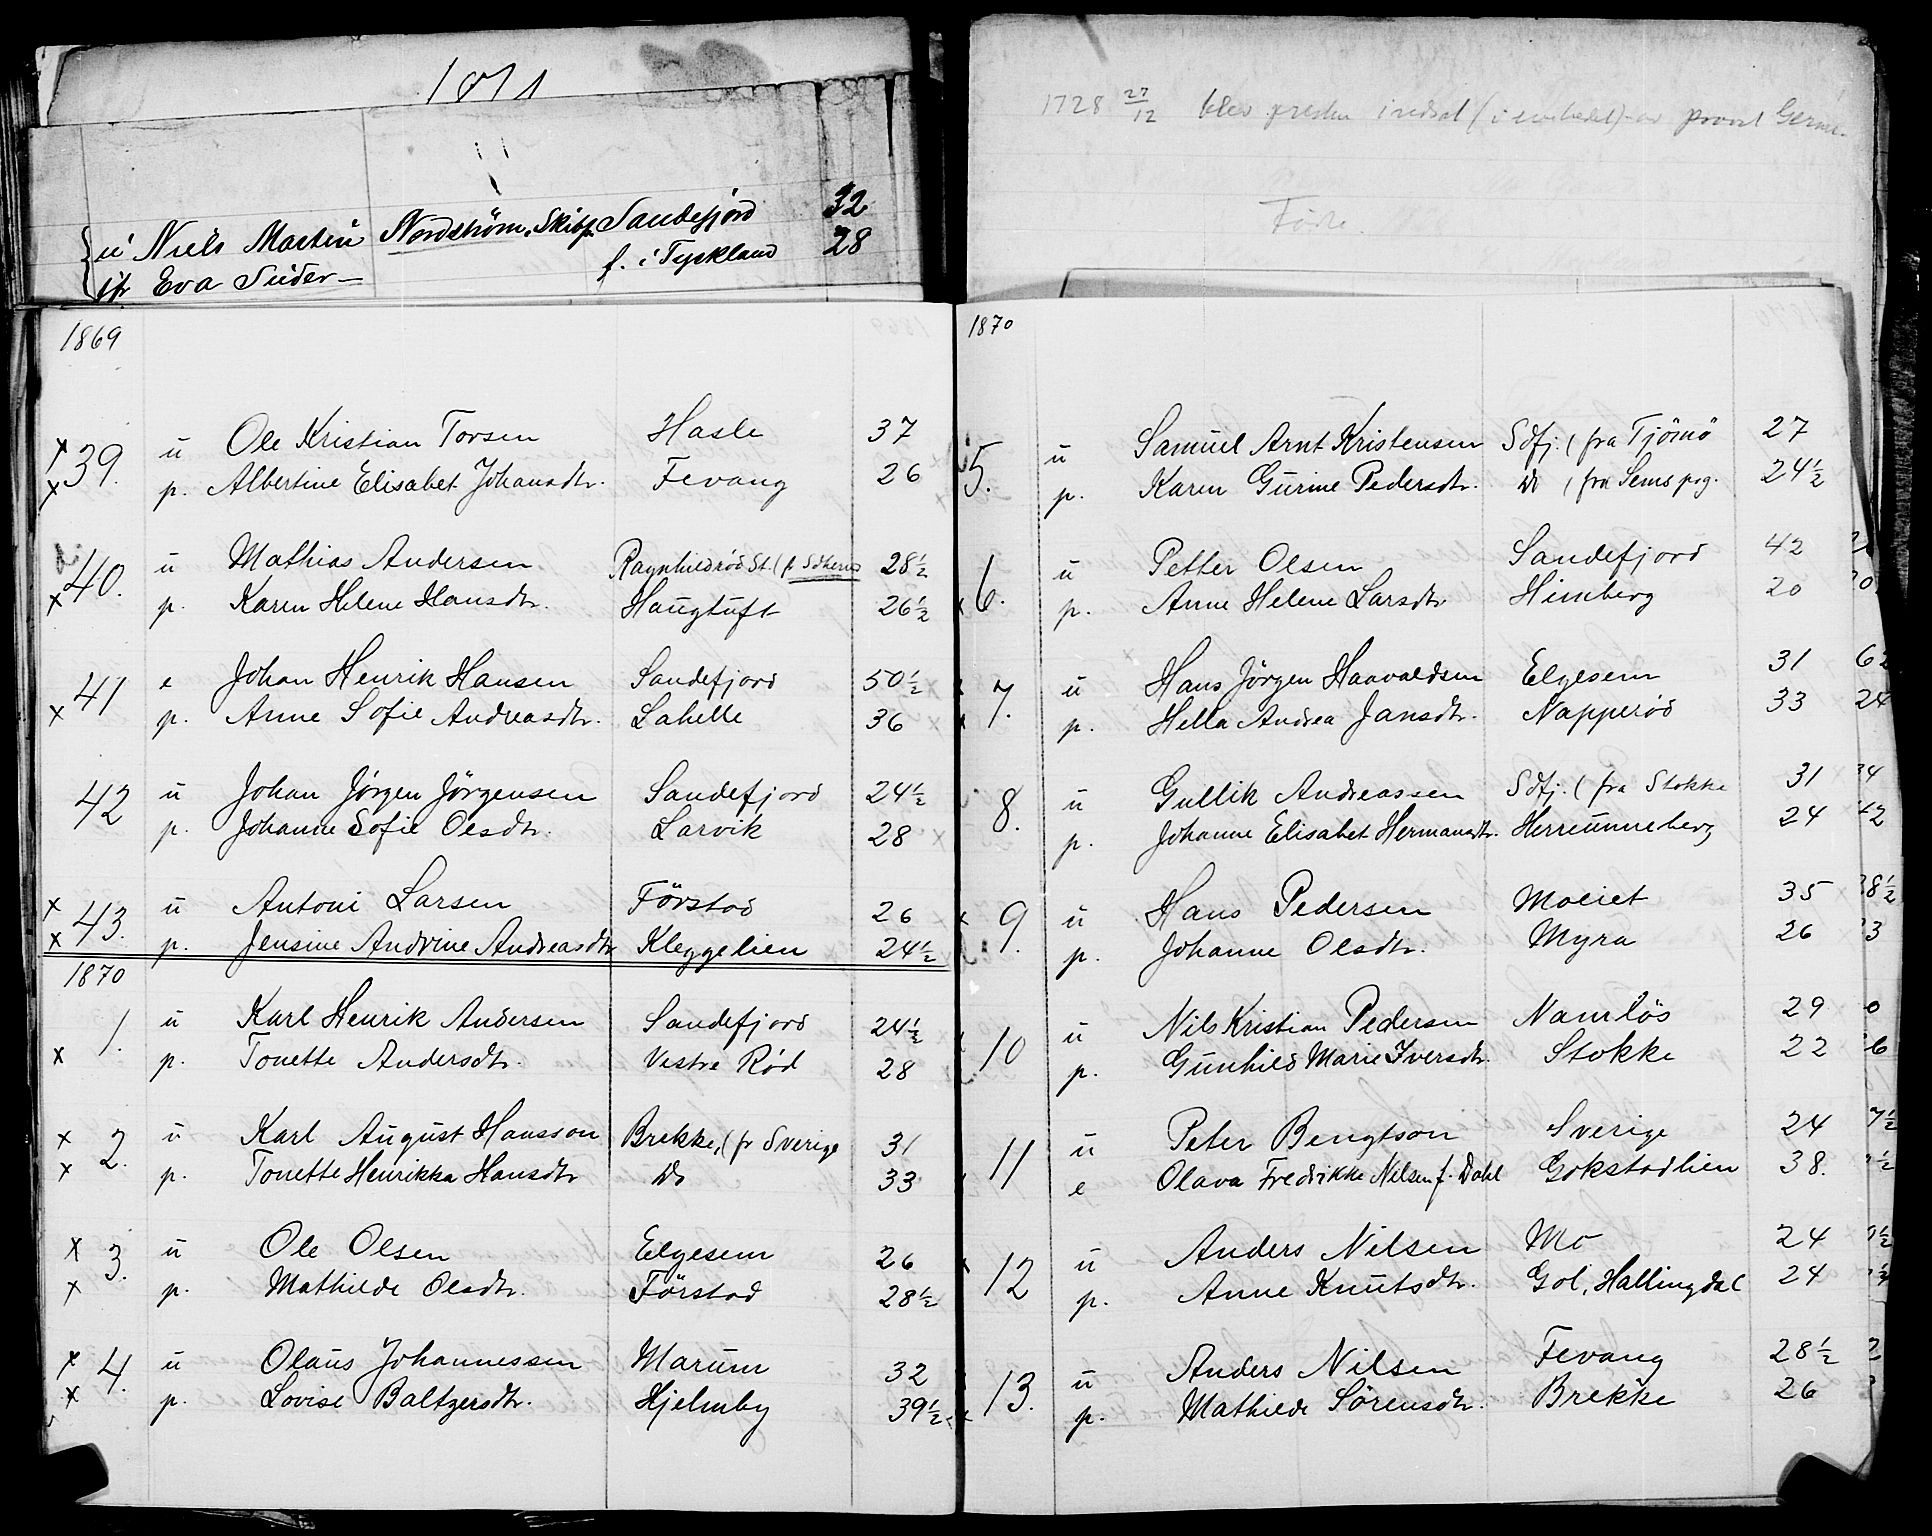 1871
{ u Niels Martin Nordström, Skibsf. Sandefjord 32
p Eva Suder— f. i Tyskland 28
1869
x 39. u Ole Kristian Torsen Hasle 37
x p. Albertine Elisabet Johansdtr. Fevang 26
40. u Mathias Andersen Ragnhildrød St. (f Sdherred 28½
x p. Karen Helene Hansdtr. Haugtuft 26½
41 e Johan Henrik Hansen Sandefjord 50½
x p. Anne Sofie Andreasdtr. Lahelle 36
42 u Johan Jörgen Jörgensen Sandefjord 24½
p. Johanne Sofie Olsdtr. Larvik 28
x 43. u Antoni Larsen Förstad 26
x p. Jensine Andrine Andreasdtr Kleggelien 24½
1870
1. u Karl Henrik Andersen Sandefjord 24½
x p. Tonette Andersdtr. Vestre Rød 28
x 2. u Karl August Hansson Brekke, (fr Sverige 31
x p. Tonette Henrikka Hansdtr Do 33
x 3. u Ole Olsen Elgesem 26
x p. Mathilde Olsdtr. Förstad 28½
x 4. u Olaus Johannessen Marum 32
x p. Lovise Baltzersdtr. Hjelmby 39½
1728 27/12 blev presten indsat (i embedet) av provst
Föde.
1870
5. u Samuel Arnt Kristensen Sdfj. (fra Tjömö 27
p. Karen Gurine Pedersdtr. Do (fra Sems prg. 24½
6. u Petter Olsen Sandefjord 42
x p. Anne Helene Larsdtr Himberg 20
x 7. u Hans Jörgen Haavaldsen Elgesem 31 62
x p. Hella Andrea Jansdtr. Napperød 33 24
8. u Gullik Andreassen Sdfj. (fra Stokke 31 34
p. Johanne Elisabet Hermansdtr. Herreunneberg 24 42
x 9. u Hans Pedersen Moeiet 35 38½
p. Johanne Olsdtr. Myra 26 3
10 u Nils Kristian Pedersen Namløs 29 0
p. Gunhild Marie Iversdtr. Stokke 22 6
11 u Peter Bengtson Sverige 24 7½
e Olava Fredrikke Nilsen f. Dahl Gokstadlien 38. ½
x 12 u Anders Nilsen Mo 24 ½
p. Anne Knutsdtr. Gol, Hallingdal 24 ½
13. u Anders Nilsen Fevang 28½ 2
x p. Mathilde Sörensdtr. Brekke 26